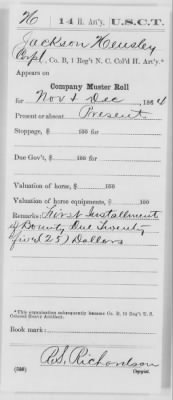 H 14 H. Art'y. U.S.C.T.
Jackson Hensley
Corpl, Co. B, 1 Reg't N. C. Col'd H. Art'y.*
Appears on
Company Muster Roll
for Nov & Dec, 1864
Present or absent Present
Stoppage, $ 100 for
Due Gov't, $ 100 for
Valuation of horse, $ 100
Valuation of horse equipments, $ 100
Remarks: First Installment
of Bounty Due Twenty
five ($25) Dollars
*This organization subsequently became Co. B, 14 Reg't U. S.
Colored Heavy Artillery.
Book mark:
R.S. Richardson
(358) Copyist.